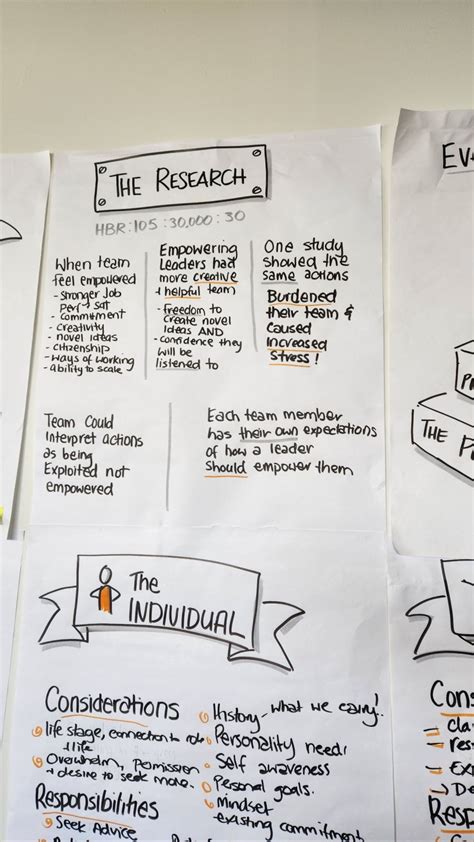 THE RESEARCH
HBR:105:30,000:30
When team
feel empowered
- Stronger Job
Perf + sat
- commitment
- creativity
- novel ideas
- citizenship
- ways of working
- ability to scale
Empowering
Leaders had
more creative
+ helpful team
- freedom to
create novel
Ideas AND
- confidence they
will be
listened to
One study
showed the
same actions
Burdened
their team &
caused
Increased
Stress!
Team could
Interpret actions
as being
Exploited not
empowered
Each team member
has their own expectations
of how a leader
should empower them
EV
THE P
The
INDIVIDUAL
Considerations
life stage, connection to role
+ life
Overwhelm, Permission
+ desire to seek more.
Responsibilities
Seek Advice
History - what we carry!
Personality need/
Self awareness
Personal goals.
Mindset
- existing commitment
Cons
- cla
- res
- Ex
Resp